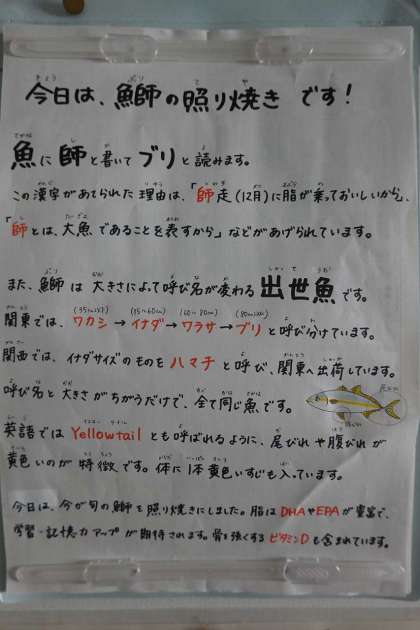 今日は、鰤の照り焼きです!
魚に師と書いてブリと読みます。
この漢字があてられた理由は、「師走(12月)に脂が乗っておいしいから」、
「師とは、大魚であることを表すから」などがあげられています。
また、鰤は大きさによって呼び名が変わる出世魚です。
関東では、ワカシ→イナダ→ワラサ→ブリと呼び分けています。
関西では、イナダサイズのものをハマチと呼び、関東へ出荷しています。
呼び名と大きさがちがうだけで、全て同じ魚です。
英語ではYellowtailとも呼ばれるように、尾びれや腹びれが
黄色いのが特徴です。体に1本黄色いすじも入っています。
今日は、今が旬の鰤を照り焼きにしました。脂はDHAやEPAが豊富で、
学習・記憶力アップが期待されます。骨を強くするビタミンDも含まれています。